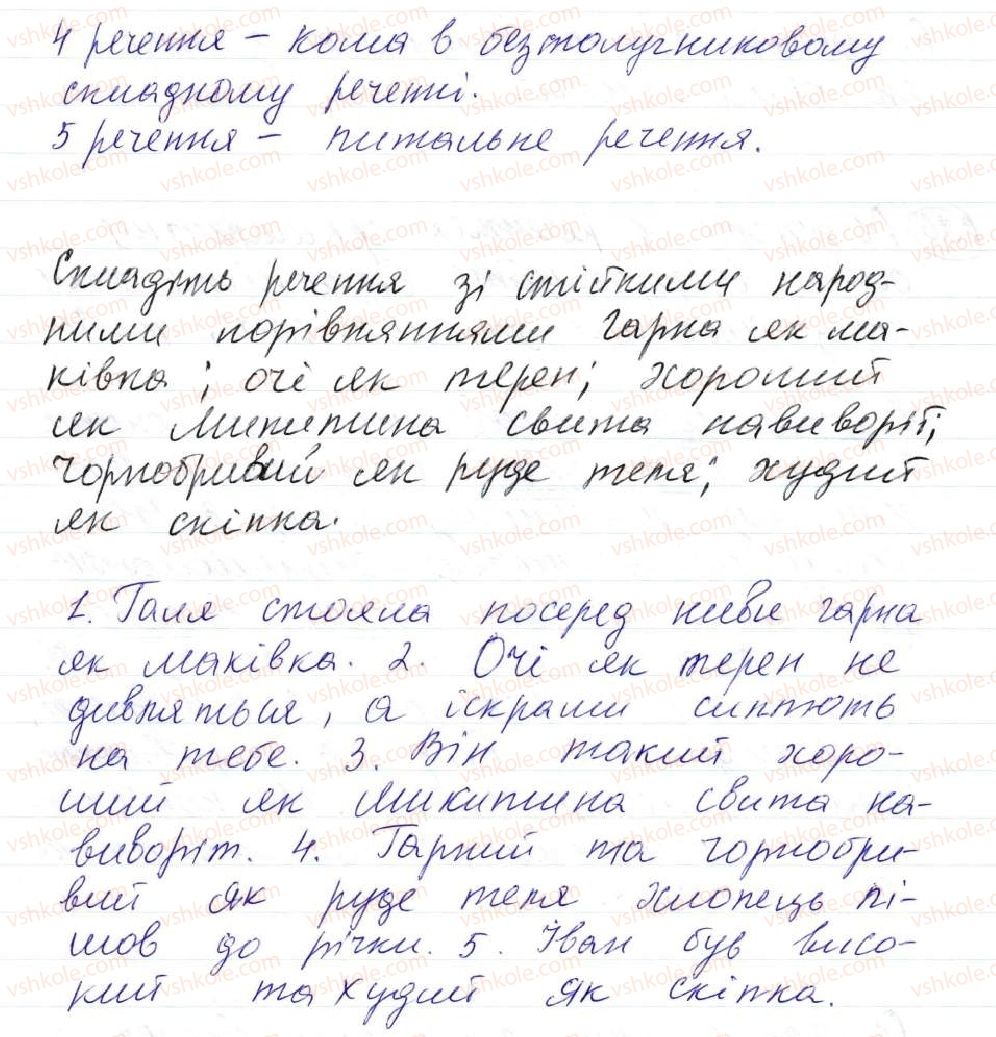 4 речення – кома в безполучниковому
складному реченні.
5 речення – питальне речення.
Складіть речення зі стійкими народ-
ними порівняннями гарна як ма-
ківка; очі як терен; хороший
як Микитина свита навиворіт;
чорнобривий як руде теля; худий
як скіпка.
1. Галя стояла посеред ниви гарна
як маківка. 2. Очі як терен не
дивляться, а іскрами сиплють
на тебе. 3. Він такий хоро-
ший як Микитина свита на-
виворіт. 4. Гарний та чорнобри-
вий як руде теля хлопець пі-
шов до річки. 5. Іван був висо-
кий та худий як скіпка.